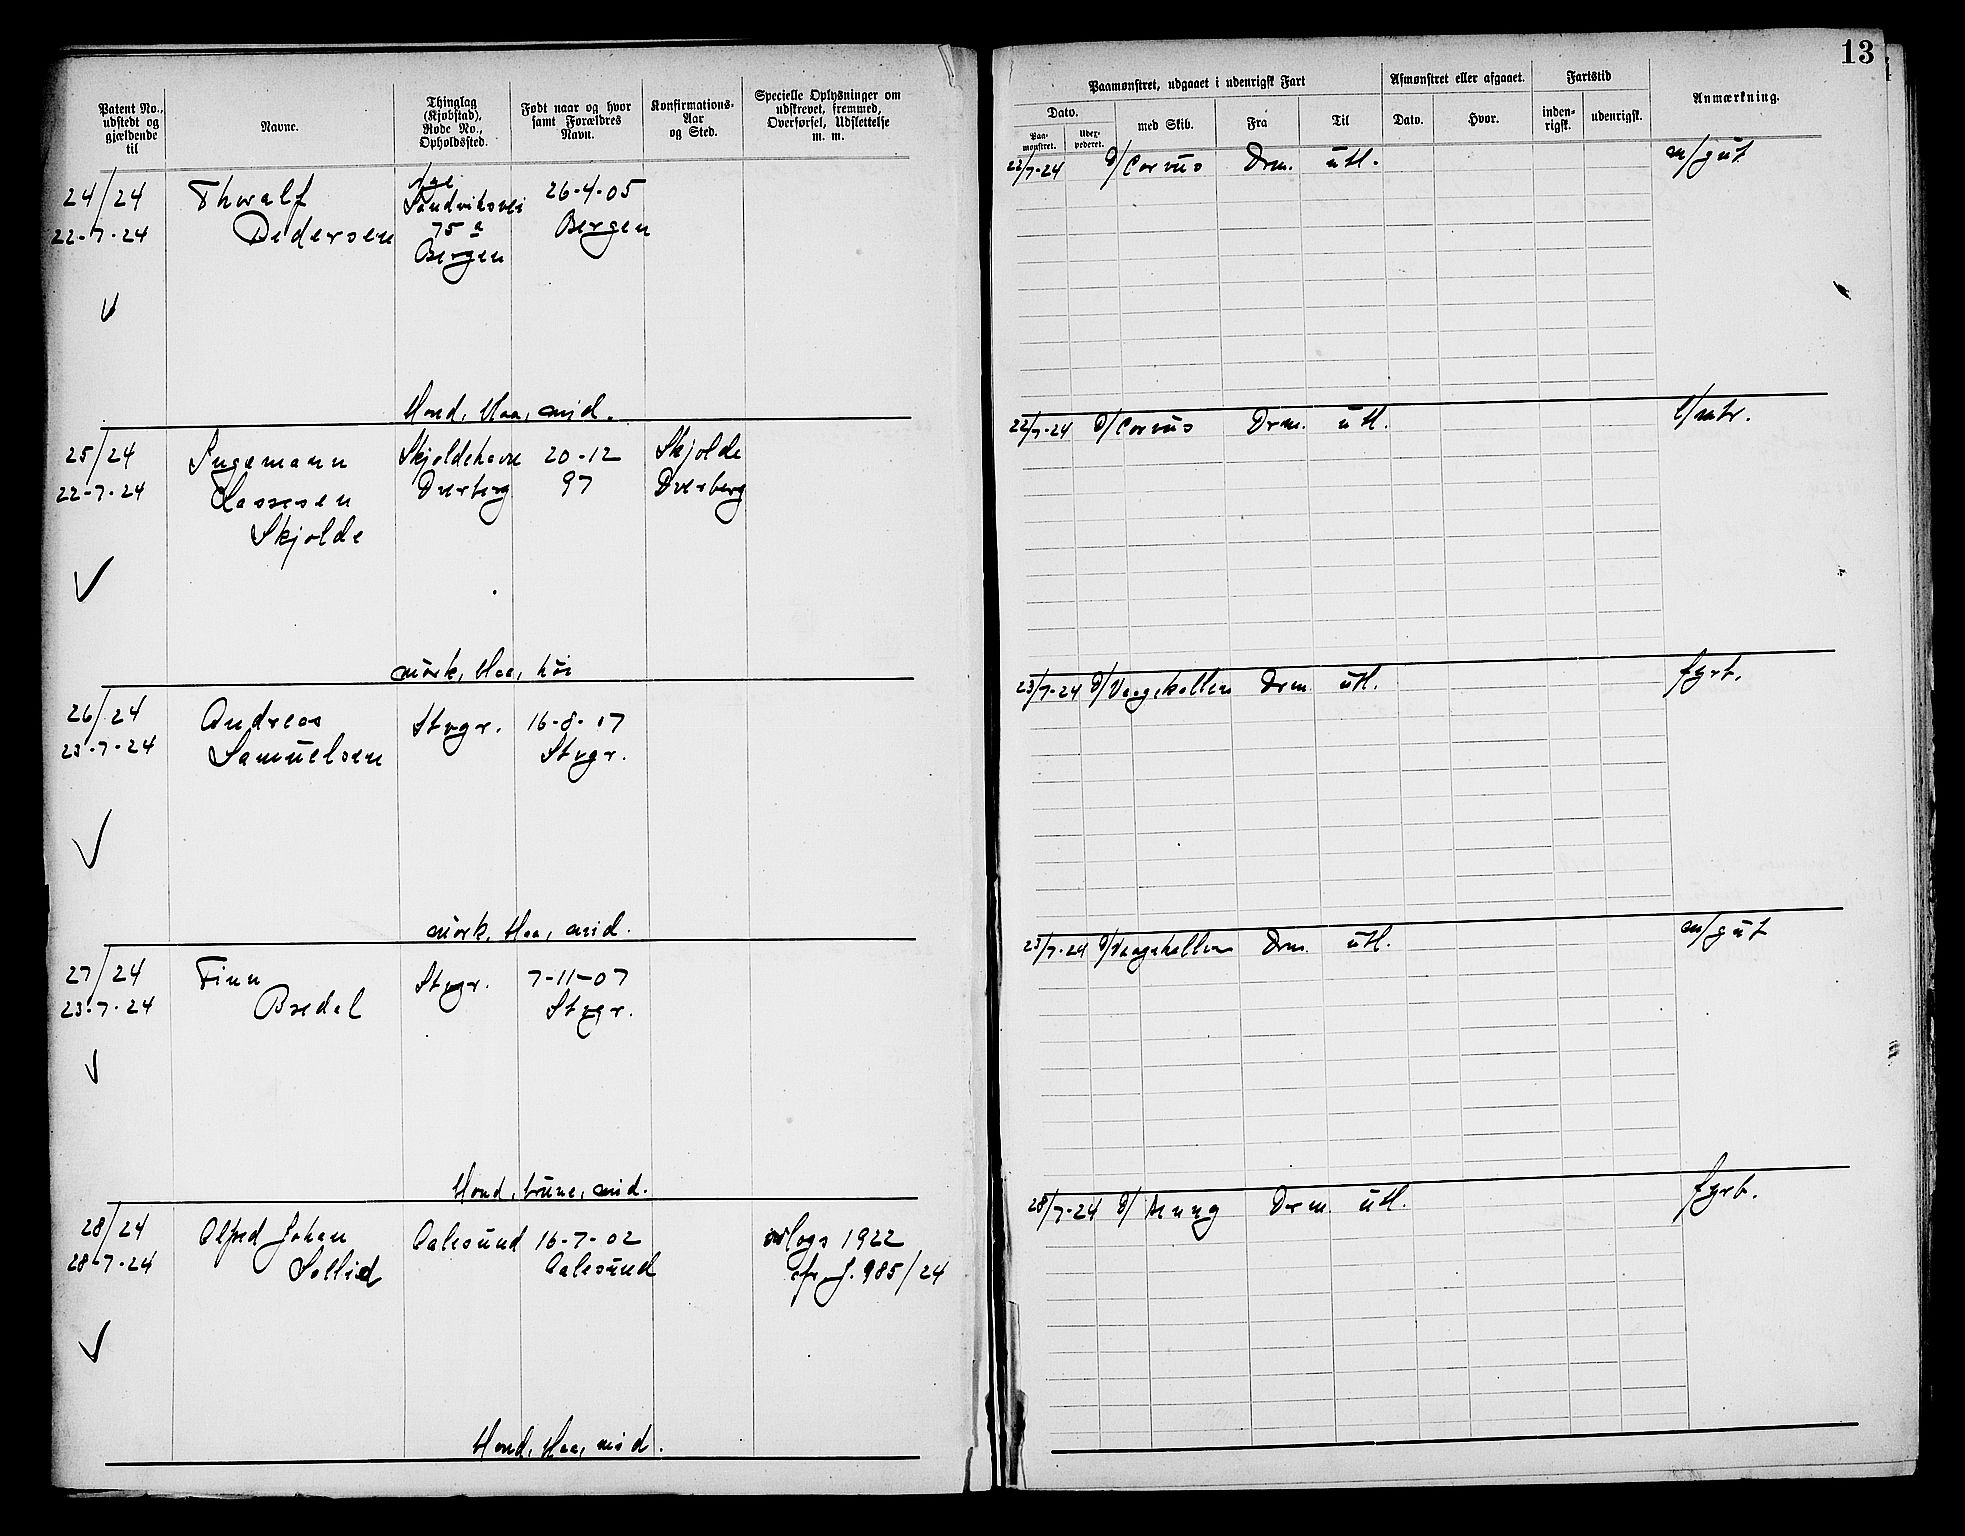 13
Patent No., udstedt og gjældende til
Navne.
Thinglag (Kjøbstad), Rode No., Opholdssted.
Født naar og hvor samt Forældres Navn.
Konfirmations-Aar og Sted.
Specielle Oplysninger om udskrevet, fremmed, Overførsel, Udslettelse m. m.
Paamønstret, udgaaet i udenrigsk Fart
Afmønstret eller afgaaet.
Fartstid
Anmærkning.
Dato.
Paa-mønstret.
med Skib.
Fra
Til
Dato.
Hvor.
inden-rigsk.
udenrigsk.
24/24 Thoralf Sandviksvei 26-4-05
22-7-24 Pedersen 75 a Bergen
Bergen
22/7-24 D/ Corvus Drm. utl. m/gut
blond, blaa, mid.
25/24 Ingemann Skjoldehavn 20-12 Skjolde
22-7-24 Classesen Dverberg 97 Dverberg
Skjolde
22/7-24 D/ Corvus Drm. utl. l/mtr.
mörk, blaa, höi
26/24 Andreas Stvgr. 16-8-07
23-7-24 Samuelsen Stvgr.
23/7-24 D/ Vaagekallen Drm. utl. fyrb.
mörk, blaa, mid.
27/24 Finn Stvgr. 7-11-07
23-7-24 Bredal Stvgr.
23/7-24 D/ Vaagekallen Drm. utl. m/gut
blond, brune, mid.
28/24 Alfred Johan Aalesund 16-7-02 orlogs 1922
28-7-24 Sollid Aalesund cfr. J. 985/24
28/7-24 D/ Drm. utl. fyrb.
blond, blaa, mid.